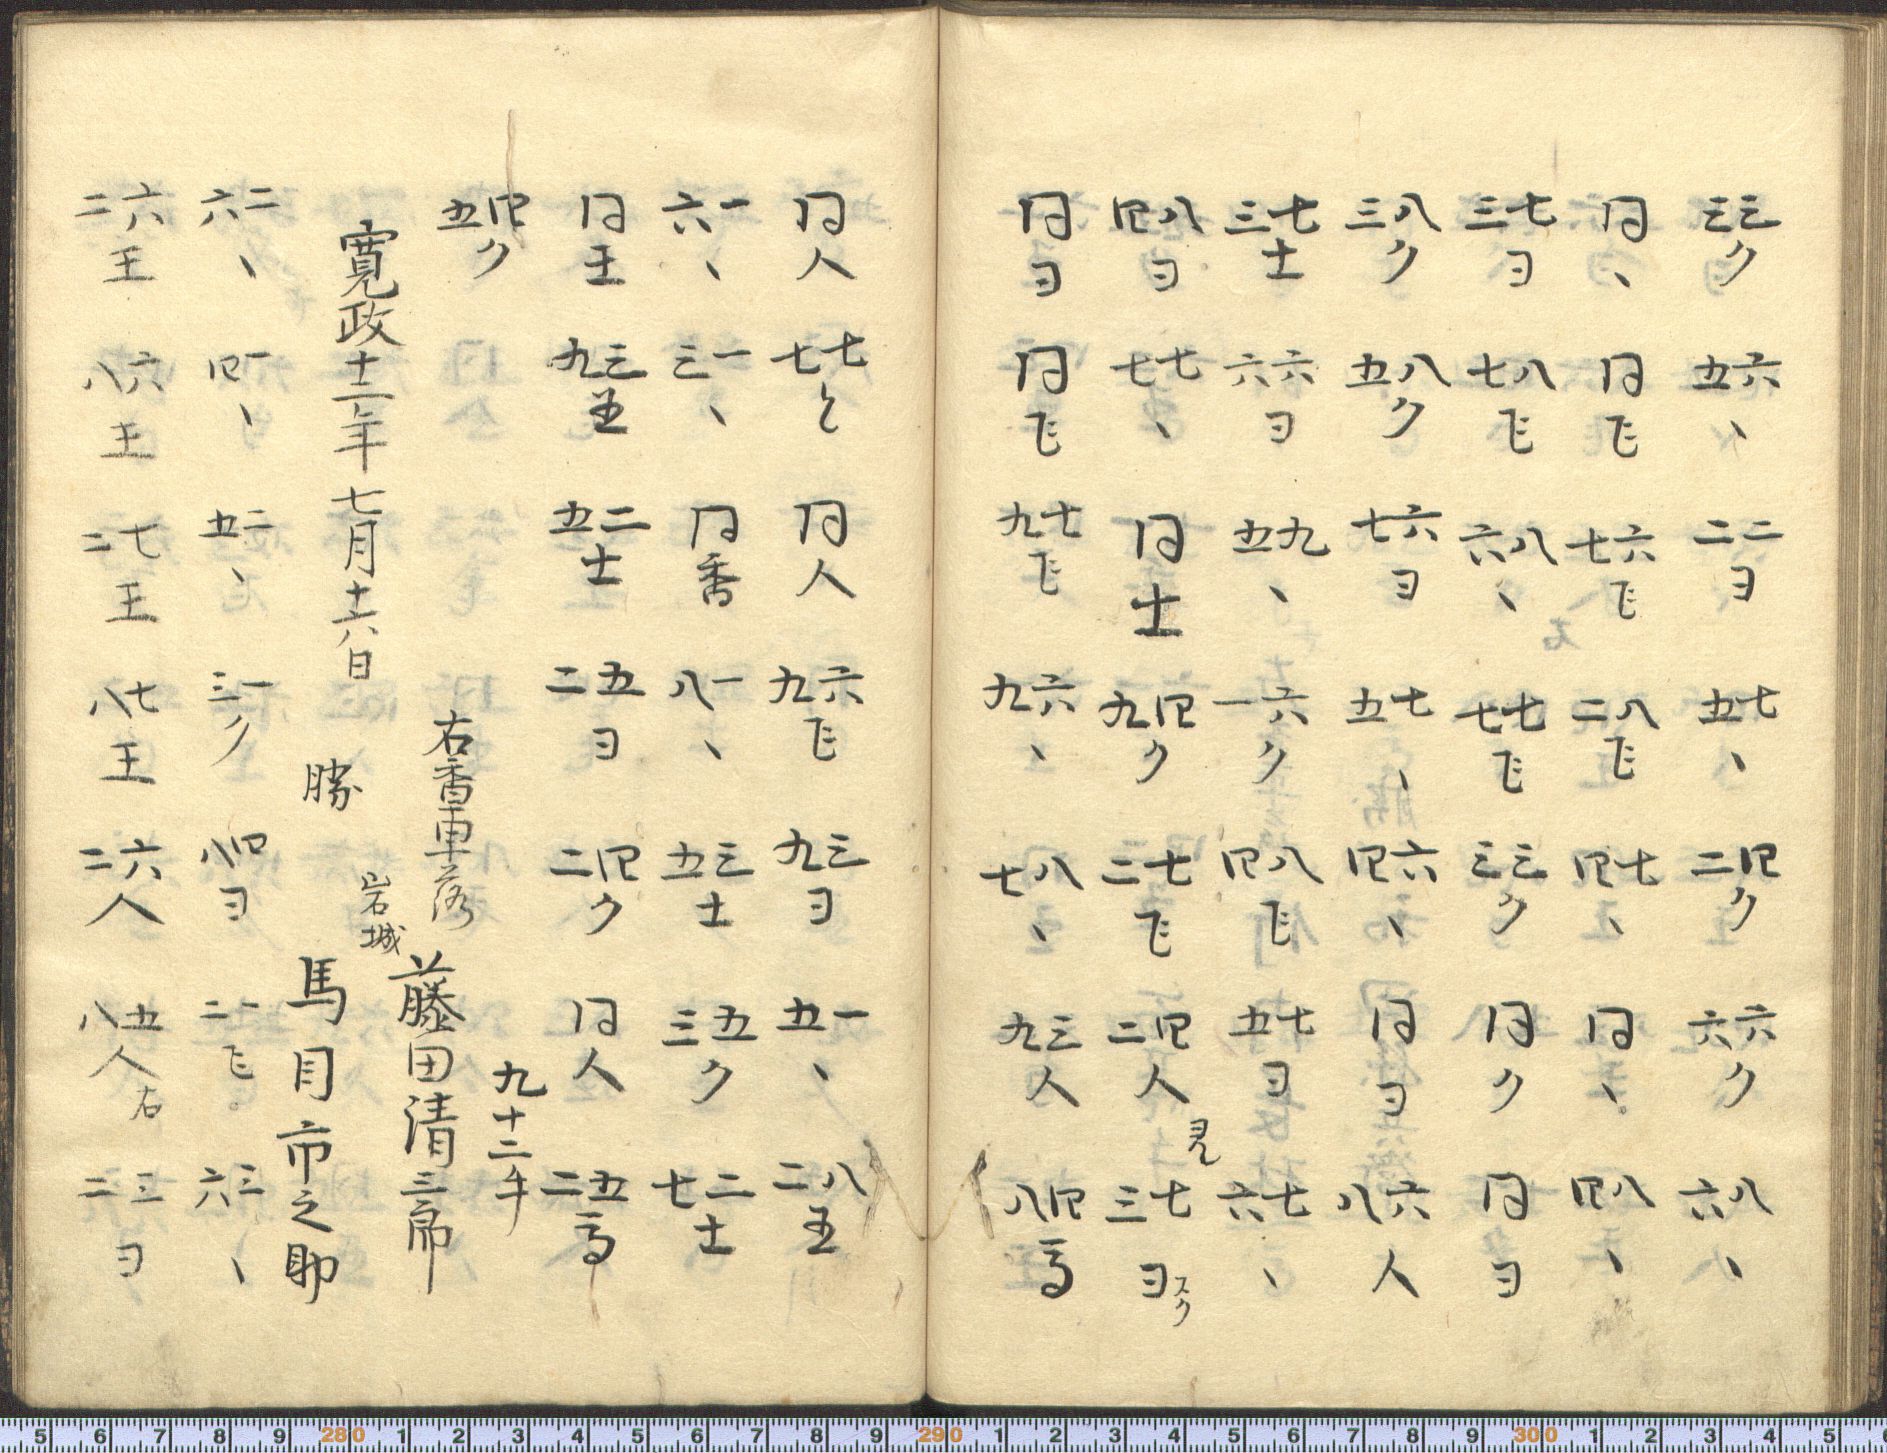 三三ク 六五、 二二ヨ 七五、 四二ク 六六ク 八六、
同、 同飞 六七飞 八二飞 七四、 同、 八四、
七三ヨ 八七飞 八六、 七七飞 三三ク 同ク 同ヨ
八三ク 八五ク 六七ヨ 七五、 六四、 同ヨ 六八人
七三士 六六ヨ 九五、 六一ク 八四飞 七五ヨ 七六、
八四ヨ 七七、 同士 四九ク 七二飞 四二人 見 七三ヨ スク
同ヨ 同飞 七九飞 六九、 八七、 三九人 四八馬
同人 七七と 同人 六九飞 三九ヨ 一五、 八二玉
一六、 一三、 同香 一八、 三五士 五三ク 二七士
同王 三九玉 二五士 五二ヨ 四二ク 同人 五二馬
四五ク 九十二手
右香車落 藤田清三郎
寛政十二年七月十六日 岩城
勝 馬目市之助
二六、 一四、 二五、 一三ク 四八ヨ 一二飞 三六、
六二王 六八王 七二王 七八王 六二人 五八人右 三二ヨ